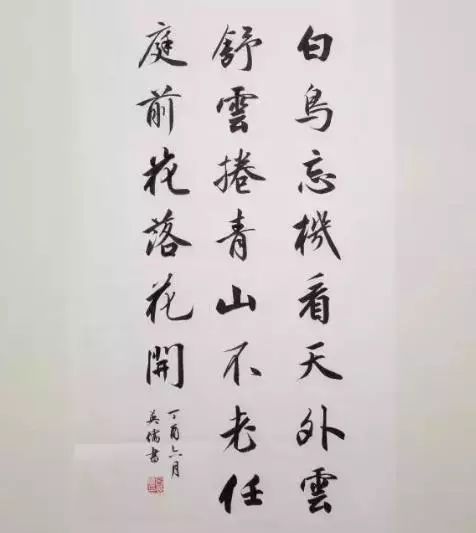 白鳥忘機看天外雲
舒雲捲青山不老任
庭前花落花開
丁酉六月
英儒書